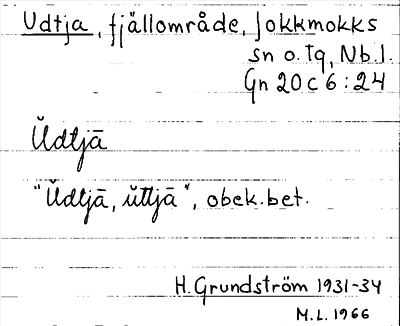 Udtja, fjällområde, Jokkmokks
sn o. tg, Nb.l.
Gn 20 C 6 : 24
Ŭdtjā
"Ŭdtjā, ŭttjā", obek.bet.
H. Grundström 1931-34
M.L. 1966